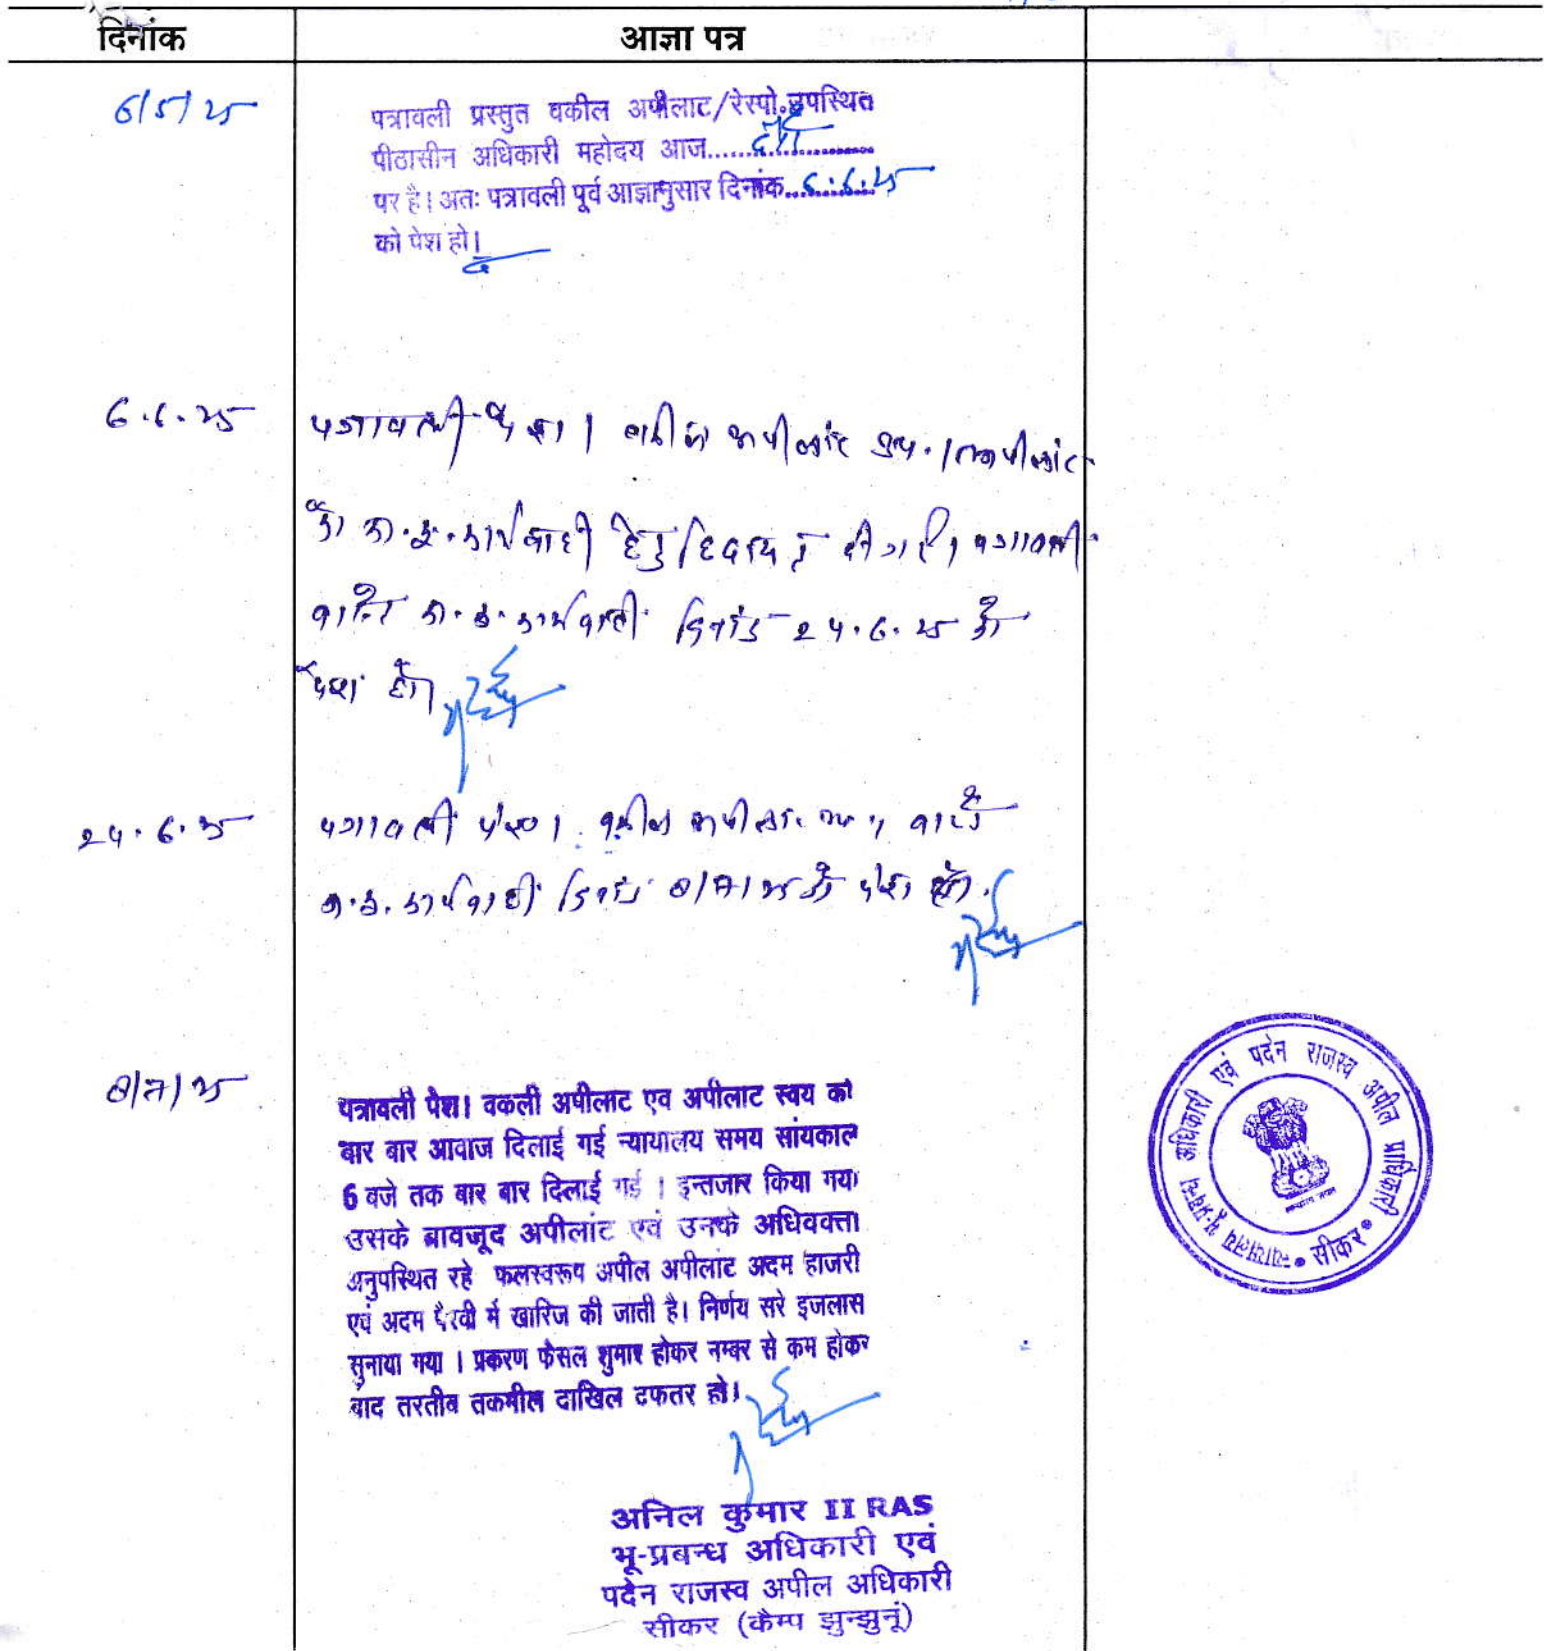 दिनांक
आज्ञा पत्र
6/5/25
पत्रावली प्रस्तुत वकील अपीलाट/रेस्पो.उपस्थित
पीठासीन अधिकारी महोदय आज..........................
पर है। अतः पत्रावली पूर्व आज्ञानुसार दिनांक..6.6.25
को पेश हो।
6.6.25
पत्रावली पेश। वकील अपीलांट उप.। अपीलांट
को का.इ.कार्यवाही हेतु हिदायत दी गई। पत्रावली
वास्ते का.इ.कार्यवाही दिनांक 24.6.25 को
पेश हो।
24.6.25
पत्रावली पेश। वकील अपीलांट उप.। वास्ते
का.इ.कार्यवाही दिनांक 8/7/25 को पेश हो.
8/7/25
पत्रावली पेश। वकली अपीलाट एव अपीलाट स्वय को
बार बार आवाज दिलाई गई न्यायालय समय सांयकाल
6 बजे तक बार बार दिलाई गई । इन्तजार किया गया
उसके बावजूद अपीलांट एवं उनके अधिवक्ता
अनुपस्थित रहे फलस्वरूप अपील अपीलांट अदम हाजरी
एवं अदम पैरवी में खारिज की जाती है। निर्णय सरे इजलास
सुनाया गया । प्रकरण फैसल शुमार होकर नम्बर से कम होकर
बाद तरतीब तकमील दाखिल दफतर हो।
न्यायालय भू-प्रबन्ध अधिकारी एवं पदेन राजस्व अपील प्राधिकारी • सीकर •
अनिल कुमार II RAS
भू-प्रबन्ध अधिकारी एवं
पदेन राजस्व अपील अधिकारी
सीकर (कैम्प झुन्झुनूं)